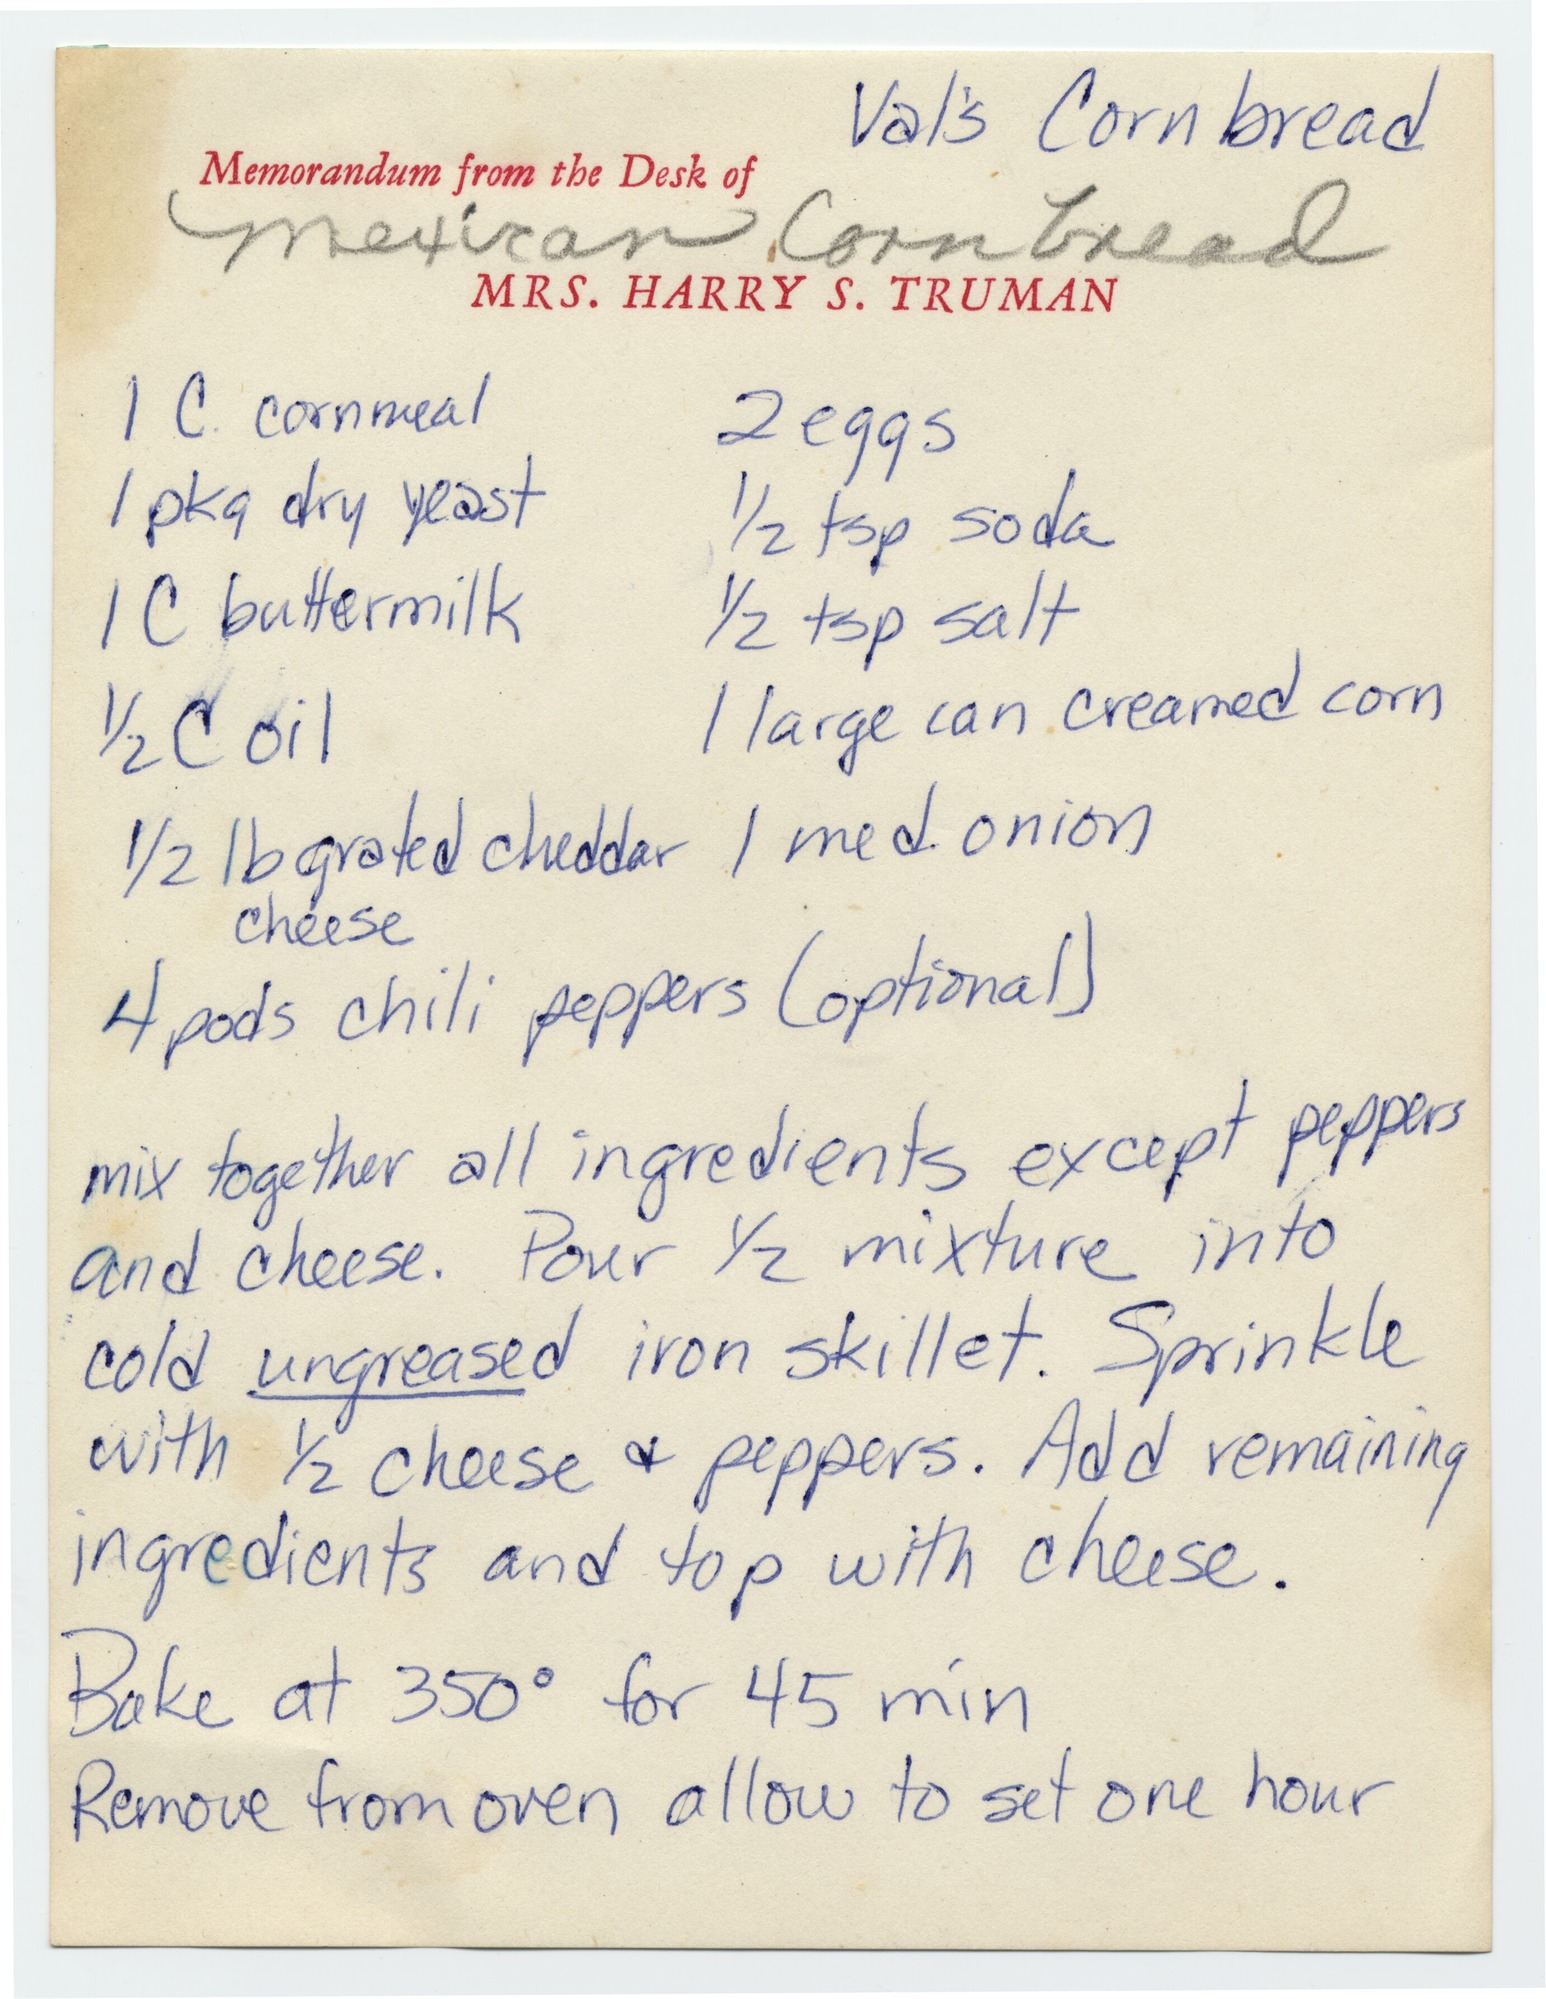 Val's Cornbread
Memorandum from the Desk of
Mexican Cornbread
MRS. HARRY S. TRUMAN
1 C. cornmeal
1 pkg dry yeast
1 C buttermilk
1/2 C oil
1/2 lb grated cheddar
cheese
4 pods chili peppers (optional)
2 eggs
1/2 tsp soda
1/2 tsp salt
1 large can creamed corn
1 med. onion
mix together all ingredients except peppers
and cheese. Pour 1/2 mixture into
cold ungreased iron skillet. Sprinkle
with 1/2 cheese & peppers. Add remaining
ingredients and top with cheese.
Bake at 350° for 45 min
Remove from oven allow to set one hour